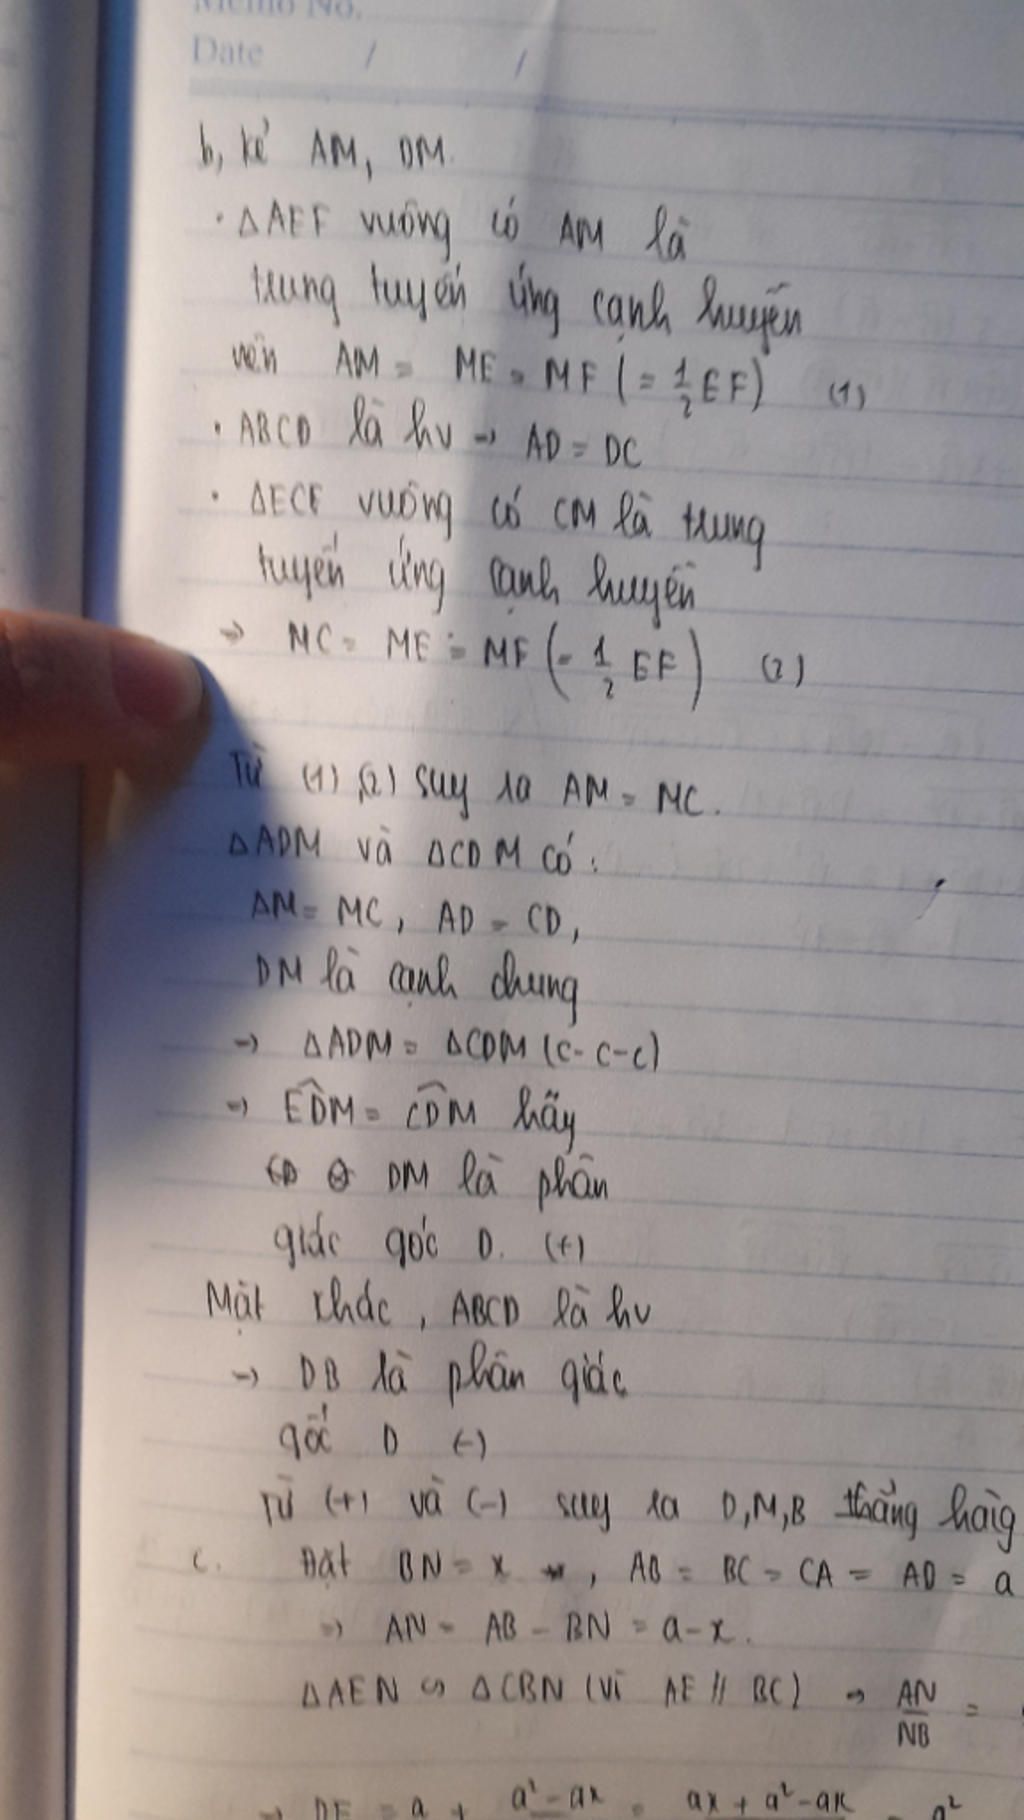 Memo No.
Date / /
b, kẻ AM, DM.
· ΔAEF vuông có AM là
trung tuyến ứng cạnh huyền
nên AM = ME = MF (= 1/2 EF) (1)
· ABCD là hv → AD = DC
· ΔECF vuông có CM là trung
tuyến ứng cạnh huyền
→ MC = ME = MF (= 1/2 EF) (2)
Từ (1), (2) suy ra AM = MC.
ΔADM và ΔCDM có:
AM = MC, AD = CD,
DM là cạnh chung
→ ΔADM = ΔCDM (c-c-c)
→ \widehat{EDM} = \widehat{CDM} hãy
DM là phân
giác góc D. (+)
Mặt khác, ABCD là hv
→ DB là phân giác
gốc D (-)
Từ (+) và (-) suy ra D,M,B thẳng hàng
c. Đặt BN = x , AB = BC = CA = AD = a
⇒ AN = AB - BN = a-x.
ΔAEN ∽ ΔCBN (vì AE // BC) → AN/NB =
→ DE = a + a²-ax = ax + a²-ax = a²